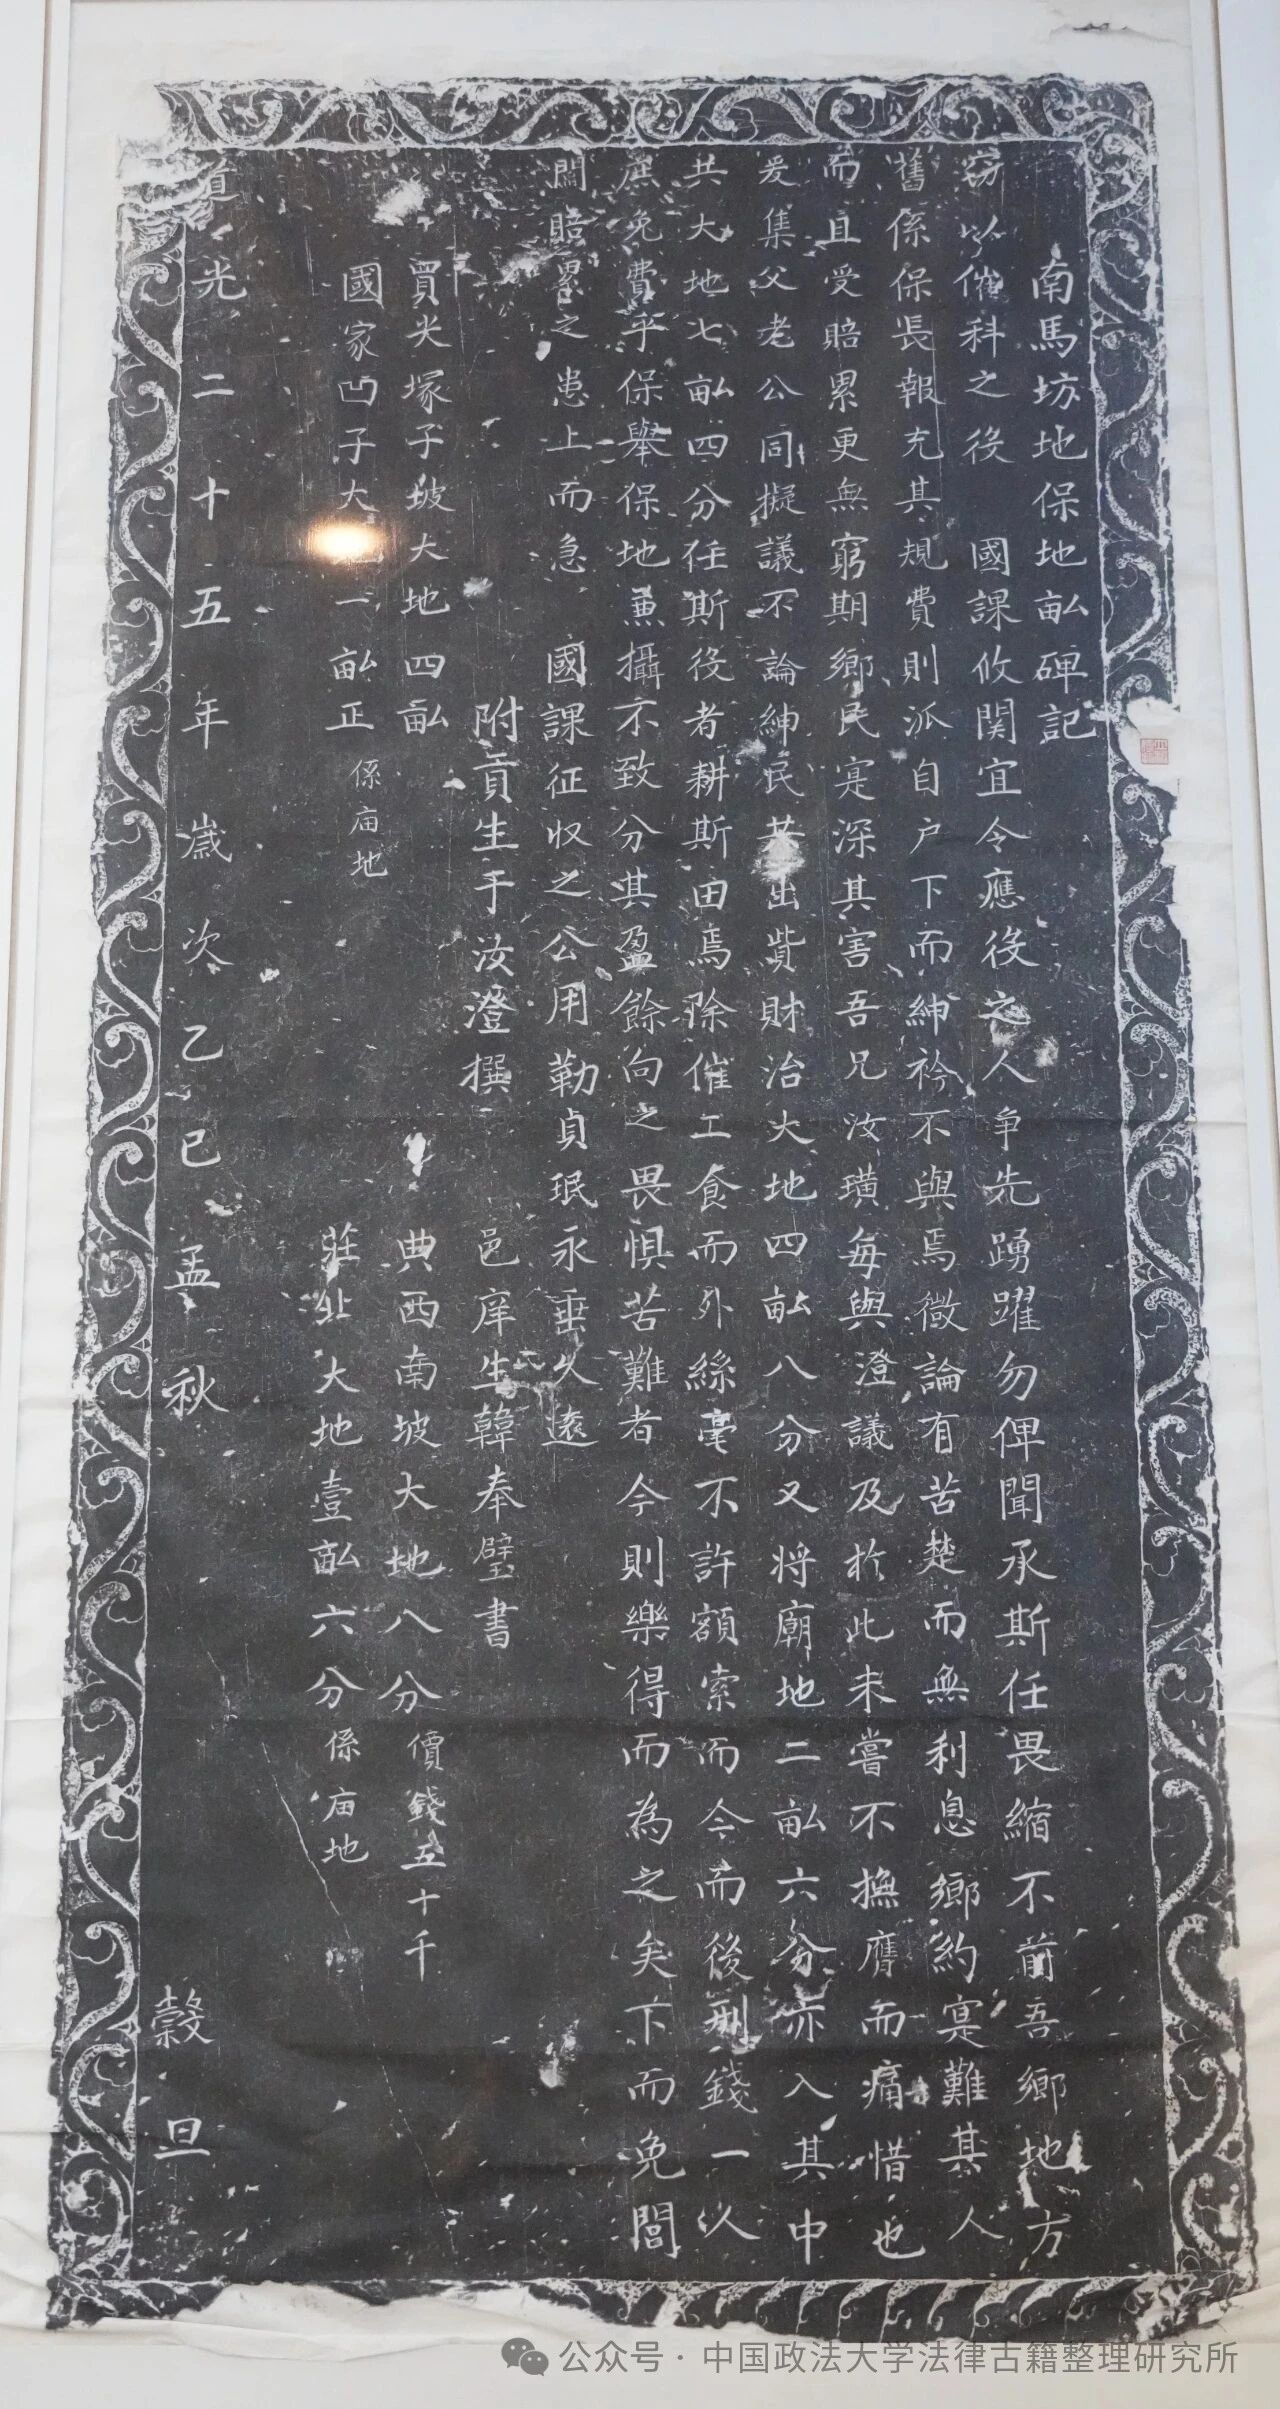 南馬坊地保地畝碑記
窃以催科之後　國課攸関宜令應役之人争先踴躍勿俾聞承斯任畏縮不前吾鄉地方
舊係保長報充其規費則派自户下而紳衿不與焉微論有苦楚而無利息鄉約寔難其人
而且受賠累更無窮期鄉民寔深其害吾兄汝璜每與澄議及於此未嘗不撫膺而痛惜也
爰集父老公同擬議不論紳民共出貲財治大地四畝八分又将廟地二畝六分亦入其中
共大地七畝四分任斯役者耕斯田焉除催工食而外絲毫不許額索而今而後刑錢一以
庶免費乎保舉保地兼攝不致分其盈餘向之畏惧苦難者今則樂得而為之矣下而免閭
閻賠累之患上而急　國課征収之公用勒貞珉永垂久遠
附貢生于汝澄撰　邑庠生韓奉璧書
買尖塚子坡大地四畝　典西南坡大地八分價錢五十千
國家凹子大地一畝正係庙地　莊北大地壹畝六分係庙地
道光二十五年歲次乙巳孟秋　穀旦
公众号·中国政法大学法律古籍整理研究所